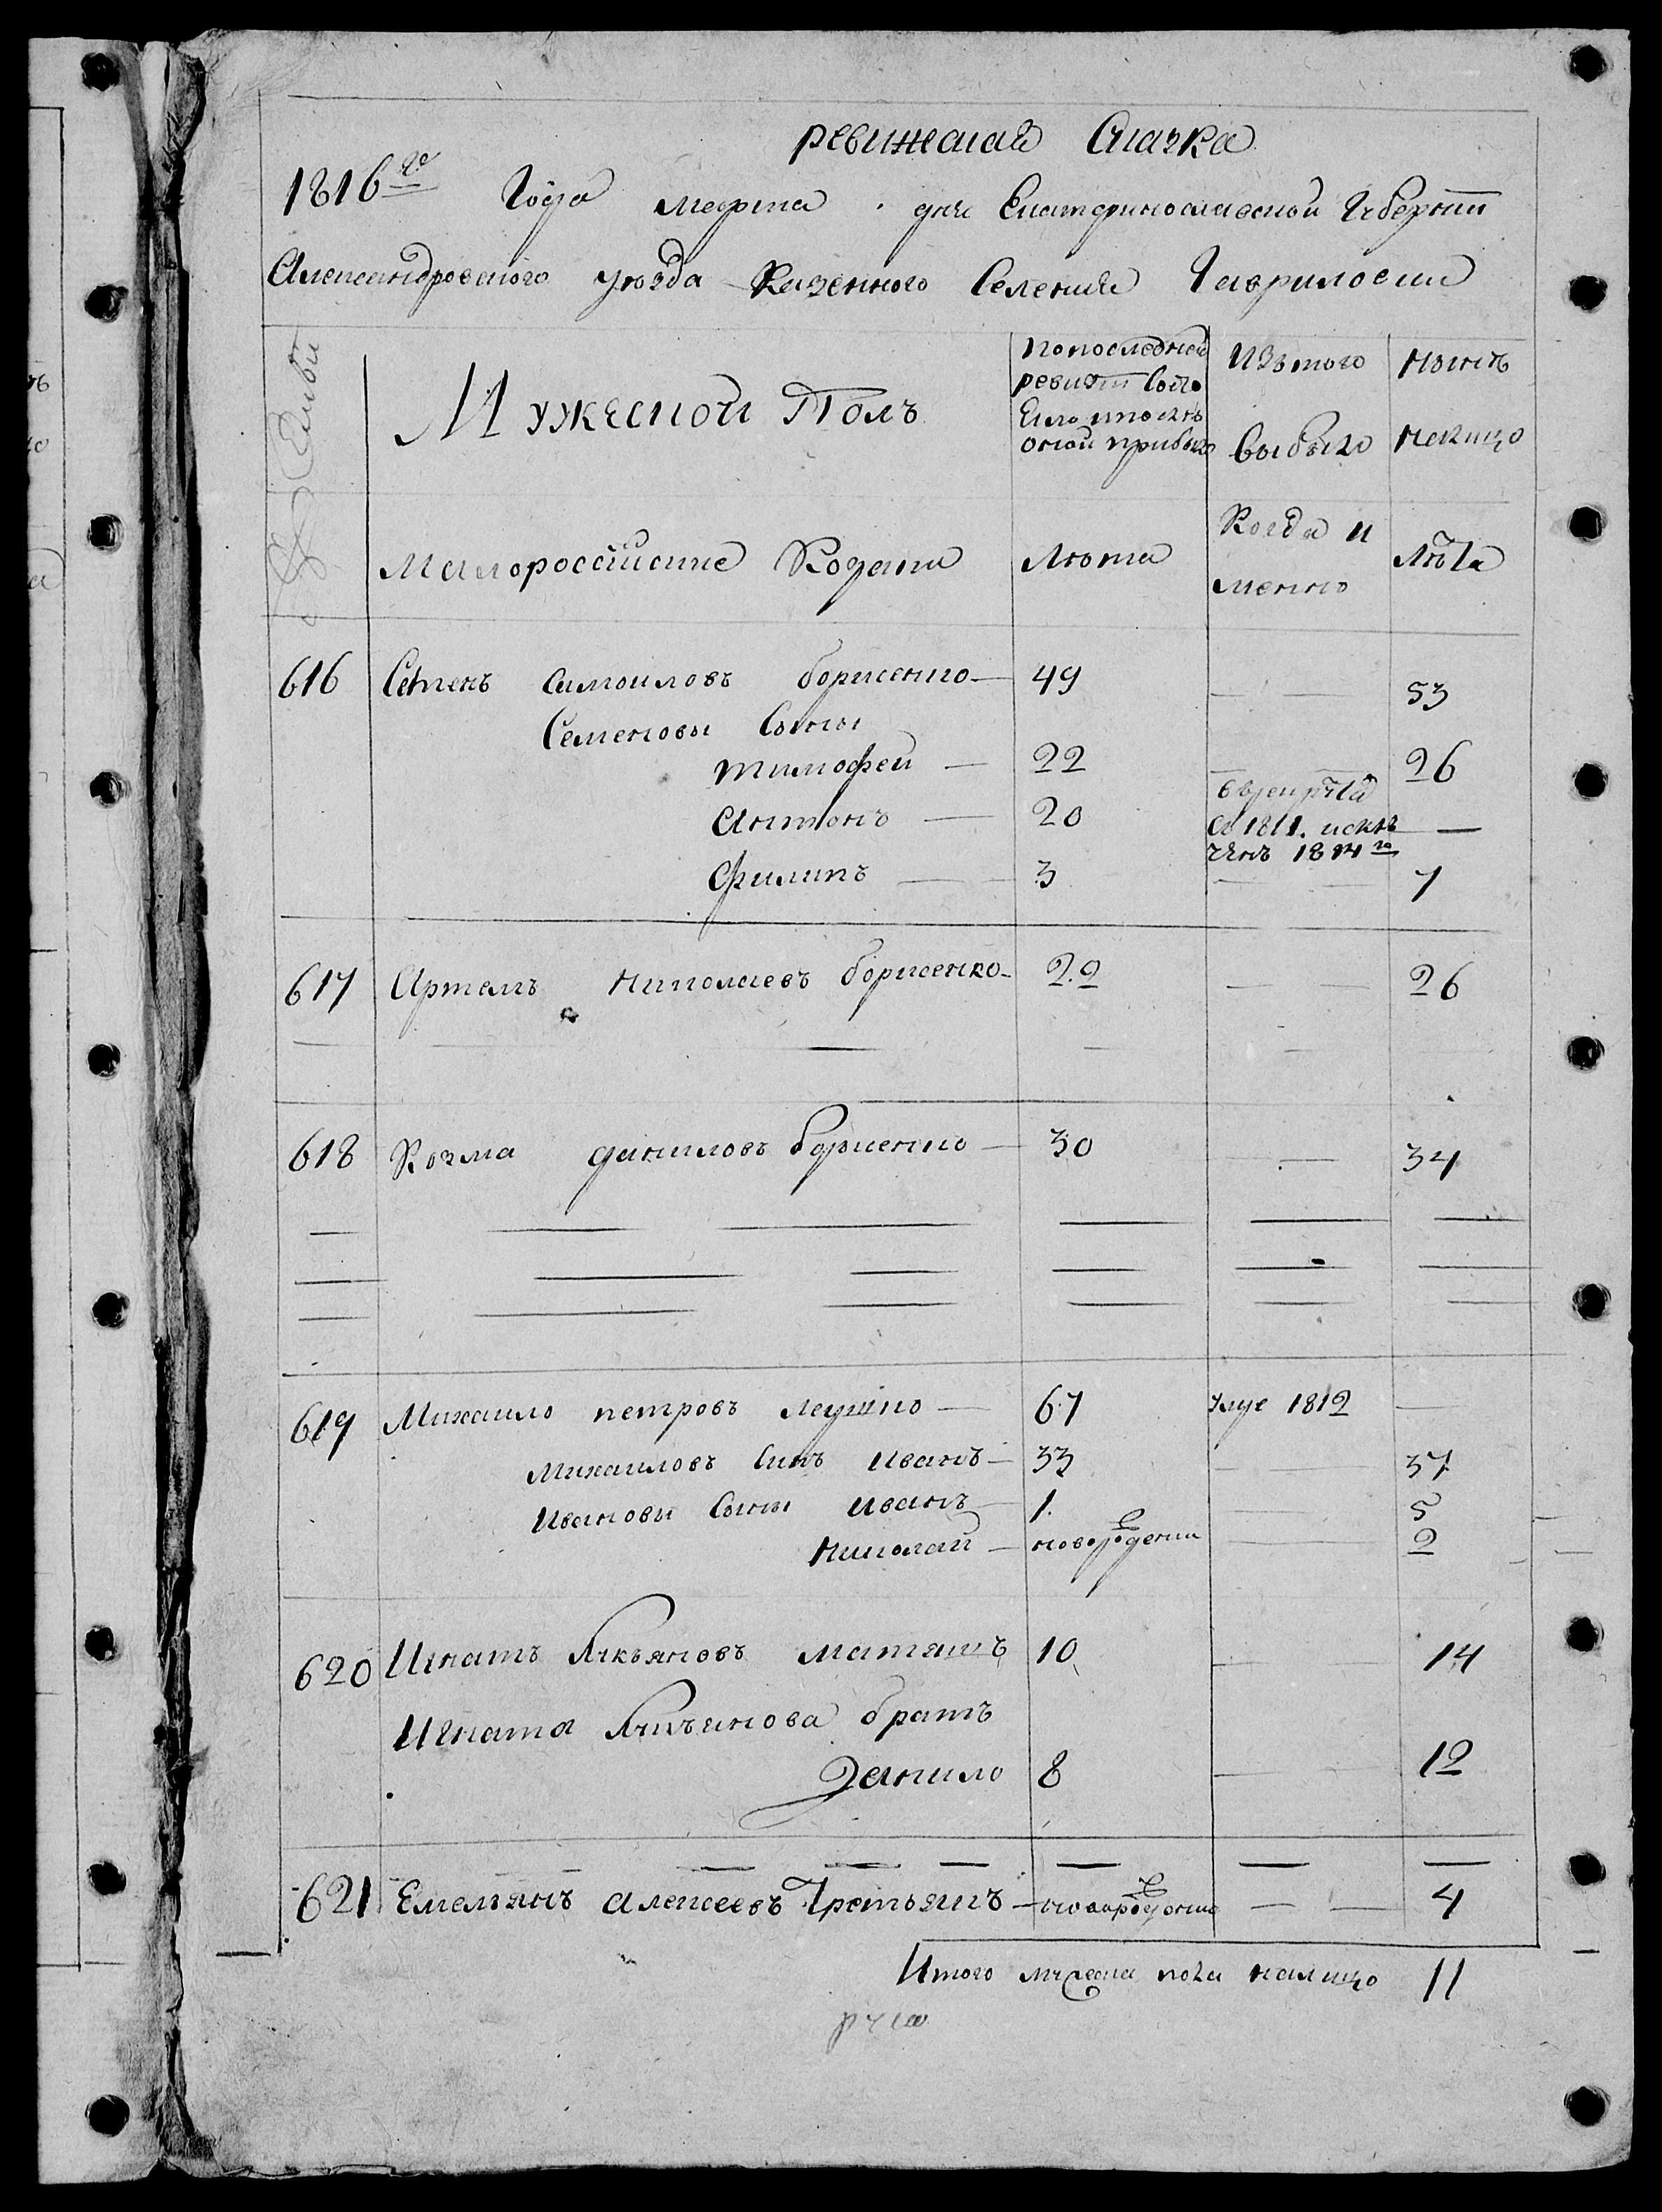 ревижская Сказка
1816го Года марта дня Екатеринославской Губернии
Александровского уезда Казенного Селения Гавриловки
Семьи
Мужеской Полъ
По последней ревизии Состо
яло и после
оной прибыло
Изъ того
выбыло
Ныне
на лицо
Малороссийские Козаки
Лета
Когда и
менно
Лѣта
616 Семенъ Самойловъ борисенко 49 53
Семеновы Сыны
тимофеи 22 26
Антонъ 20 в рекруты
Со 1811. исклю
ченъ 1814го
Филипъ 3 7
617 Артемъ Николаевъ борисенко 22 26
618 Козма даниловъ борисенко 30 34
619 Михаило петровъ лещенко 67 умре 1812
Михаиловъ Синъ Иванъ 33 37
Ивановы Сыны Иванъ 1. 5
Николай новорожденни 2
620 Игнатъ Лукьяновъ Матяшъ 10 14
Игната Лукьянова братъ
Данило 8 12
621 Емельянъ Алексеевъ Третьякъ новорожденни 4
Итого мужеска пола налицо 11